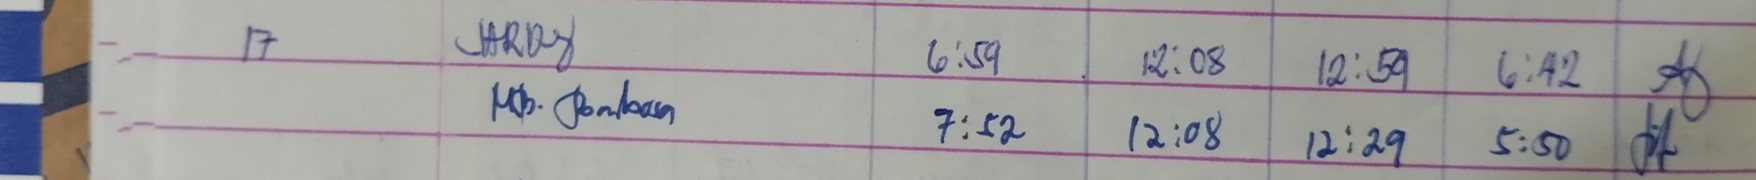 17 JARDY 6:59 12:08 12:59 6:42
7:52 12:08 12:29 5:50